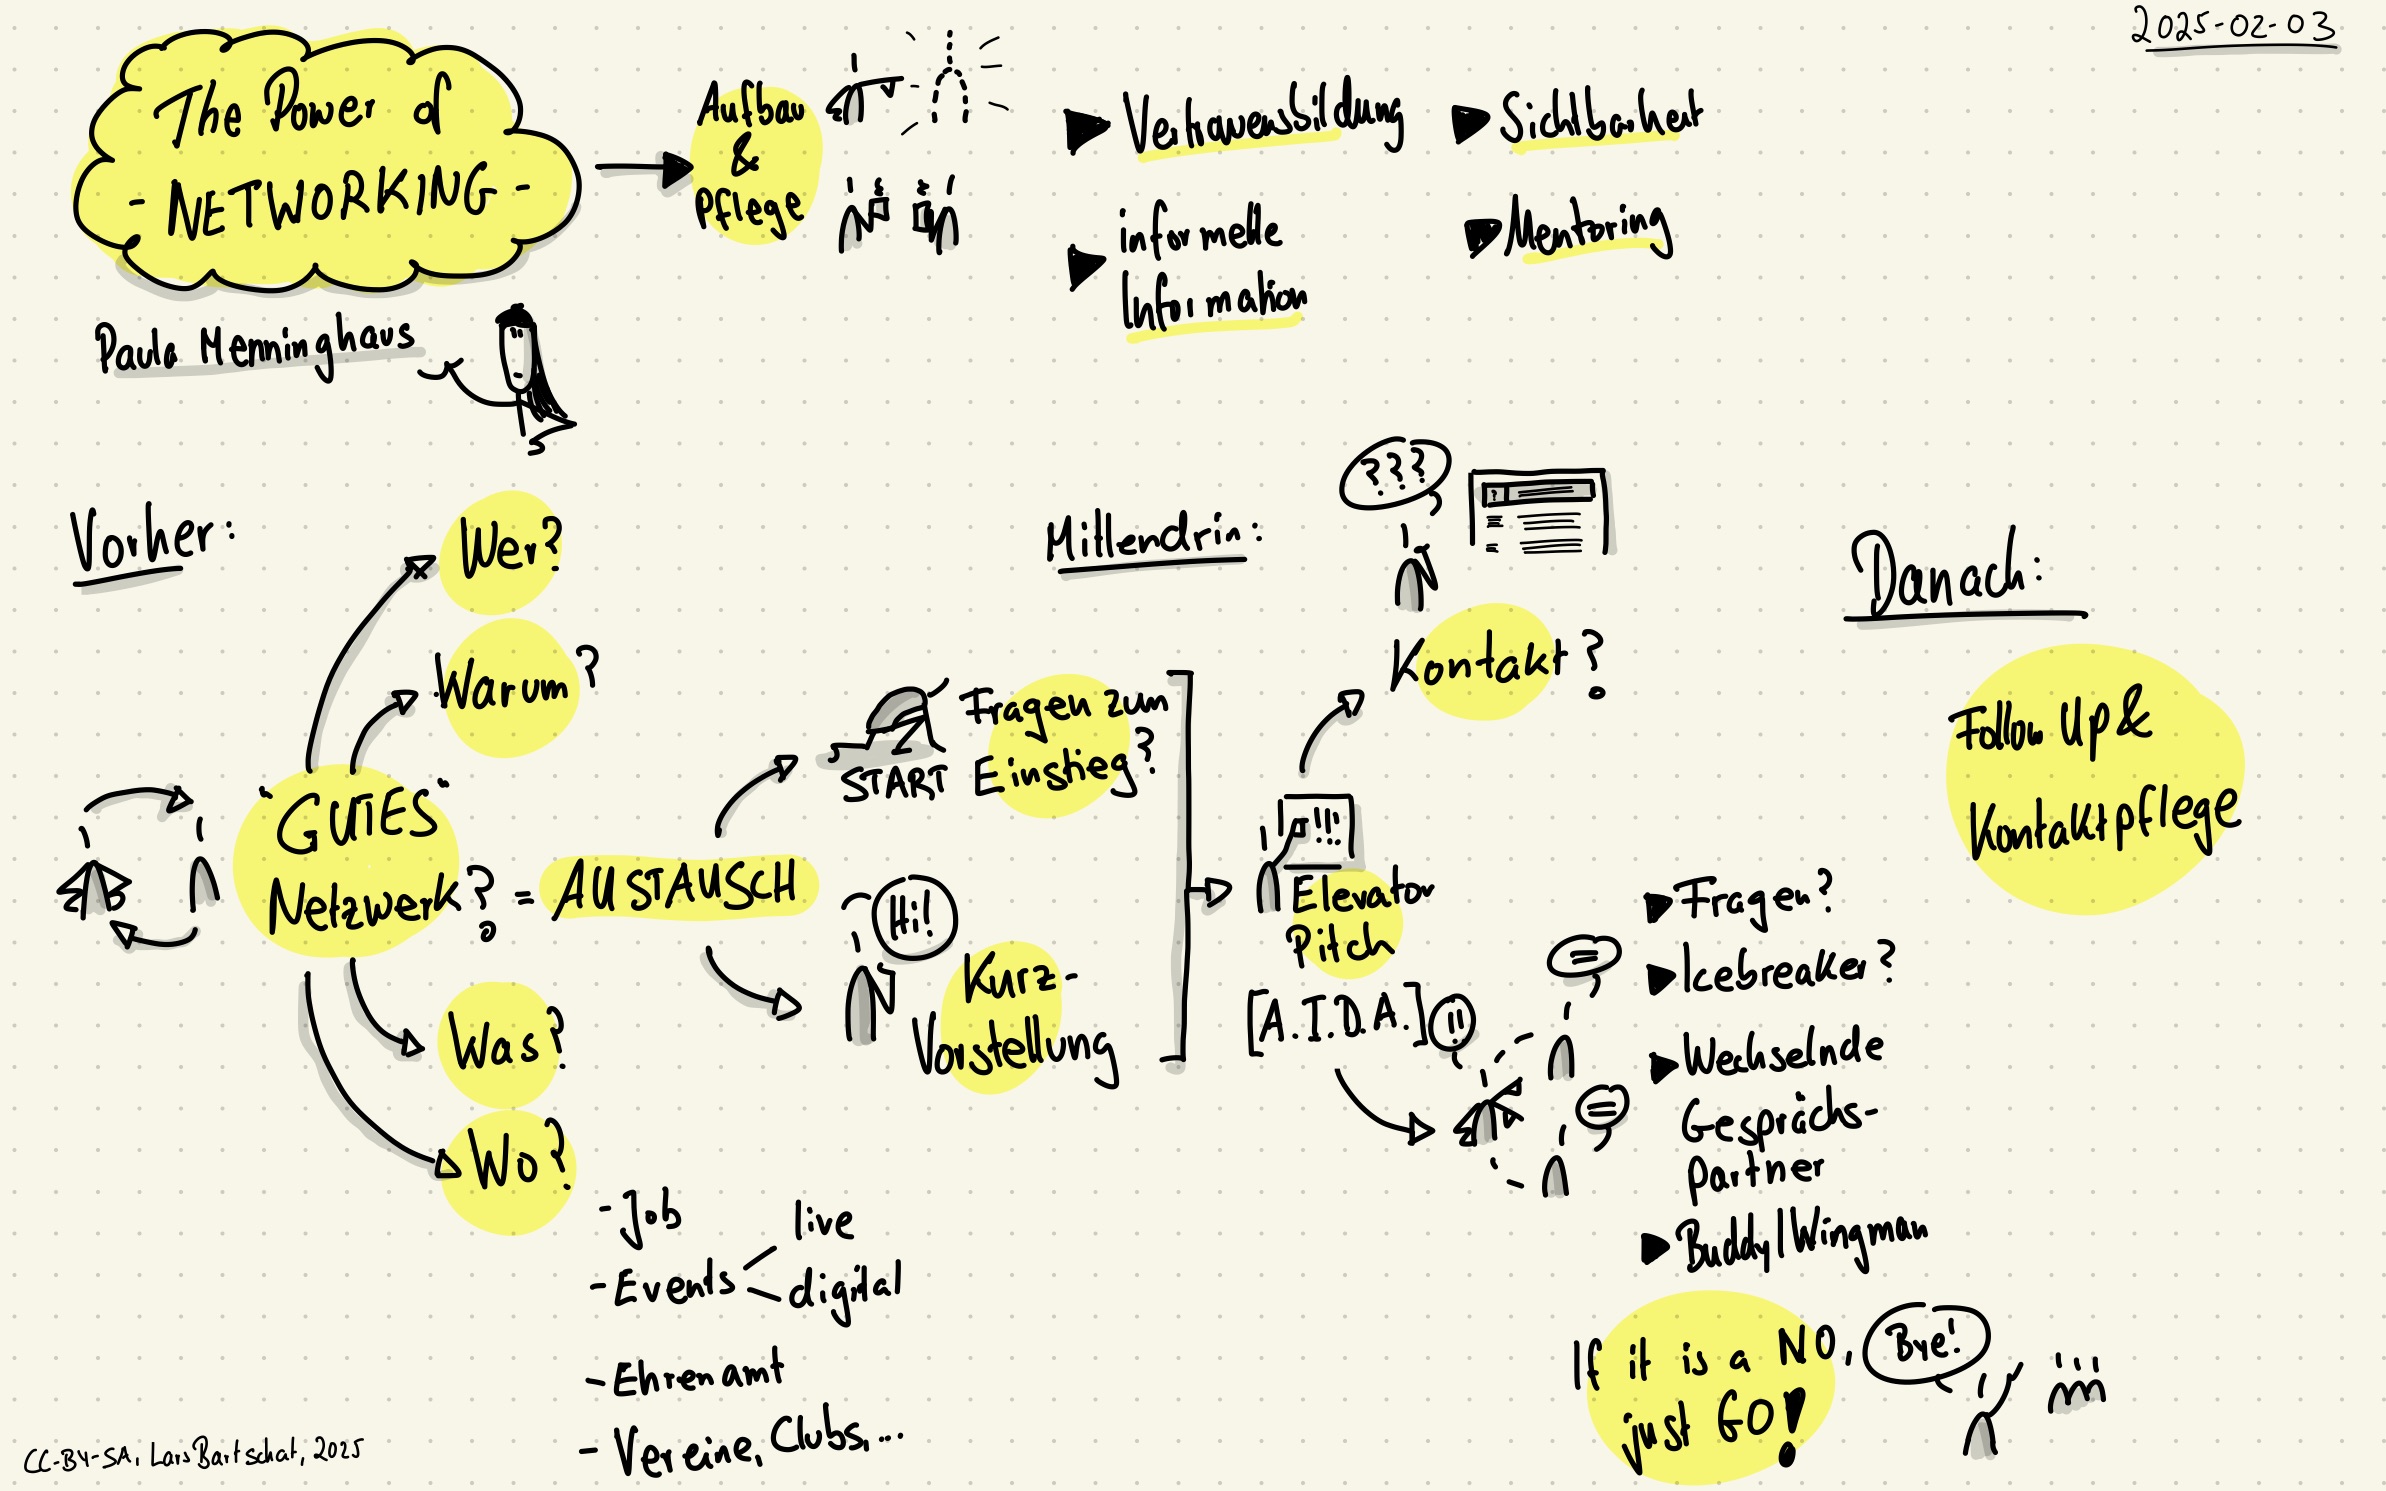 2025-02-03
The Power of
- NETWORKING -
Paula Menninghaus
Aufbau
&
Pflege
Vertrauensbildung
informelle
Information
Sichtbarkeit
Mentoring
Vorher:
Wer?
Warum?
"GUTES"
Netzwerk? = AUSTAUSCH
Was?
Wo?
- Job
- Events
live
digital
- Ehrenamt
- Vereine, Clubs, ...
START
Fragen zum
Einstieg?
Hi!
Kurz-
Vorstellung
Mittendrin:
???
?
Kontakt?
!!!
Elevator
Pitch
[A.I.D.A.]
!!
Fragen?
Icebreaker?
Wechselnde
Gesprächs-
partner
Buddy/Wingman
If it is a NO,
just GO!
Bye!
Danach:
Follow Up &
Kontaktpflege
CC-BY-SA, Lars Bartschat, 2025